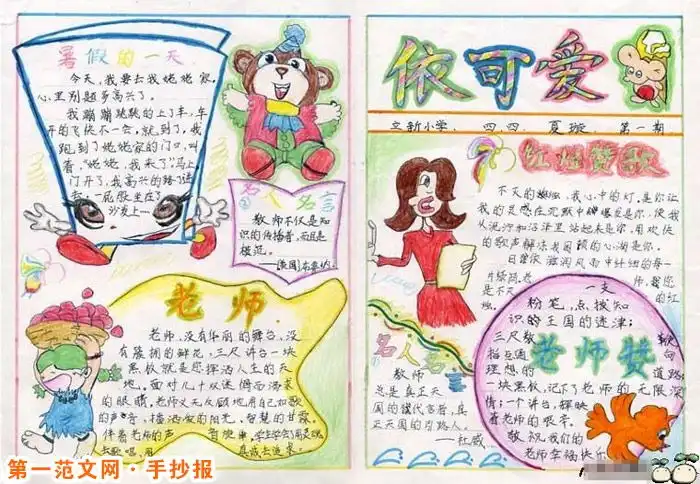 暑假的一天
今天,我要去我姥姥家,
心里别提多高兴了。
我蹦蹦跳跳的上了车,车
开的飞快不一会,就到了,我
跑到了姥姥家的门口,叫
着,"姥姥,我来了"马上
门开了,我高兴的
一屁股坐在了
沙发上……
名人名言
教师不仅是知
识的传播者,而且是
模范。
老师
老师,没有华丽的舞台,没
有簇拥的鲜花,三尺讲台一块
黑板就是您挥洒人生的天
地。面对几十双迷惘而渴求
的眼睛,老师义无反顾地用自己如歌
的声音,播洒灿烂的阳光,智慧的甘霖。
伴着老师的声
去歌唱,用
真诚去追求。
依可爱
立新小学、四、四、夏璇、第一期
红烛赞歌
不灭的蜡烛,我心中的灯,是你让
我的灵感在沉默中爆发是你,使我
从泥泞和沼泽里站起来是你,用欢快
的歌声解冻我困顿的心海是你。
名人名言
教师
这是真正天
国的代言者,真
正天国的引路人。
——杜威
老师赞
一支
粉笔,点拨知
识的王国的迷津;
三尺教鞭
指点通向
理想的道路
一块黑板,记下了老师的无限深
情;一个讲台,辉映
着老师的艰辛。
敬祝我们的
老师幸福快乐
第一范文网·手抄报